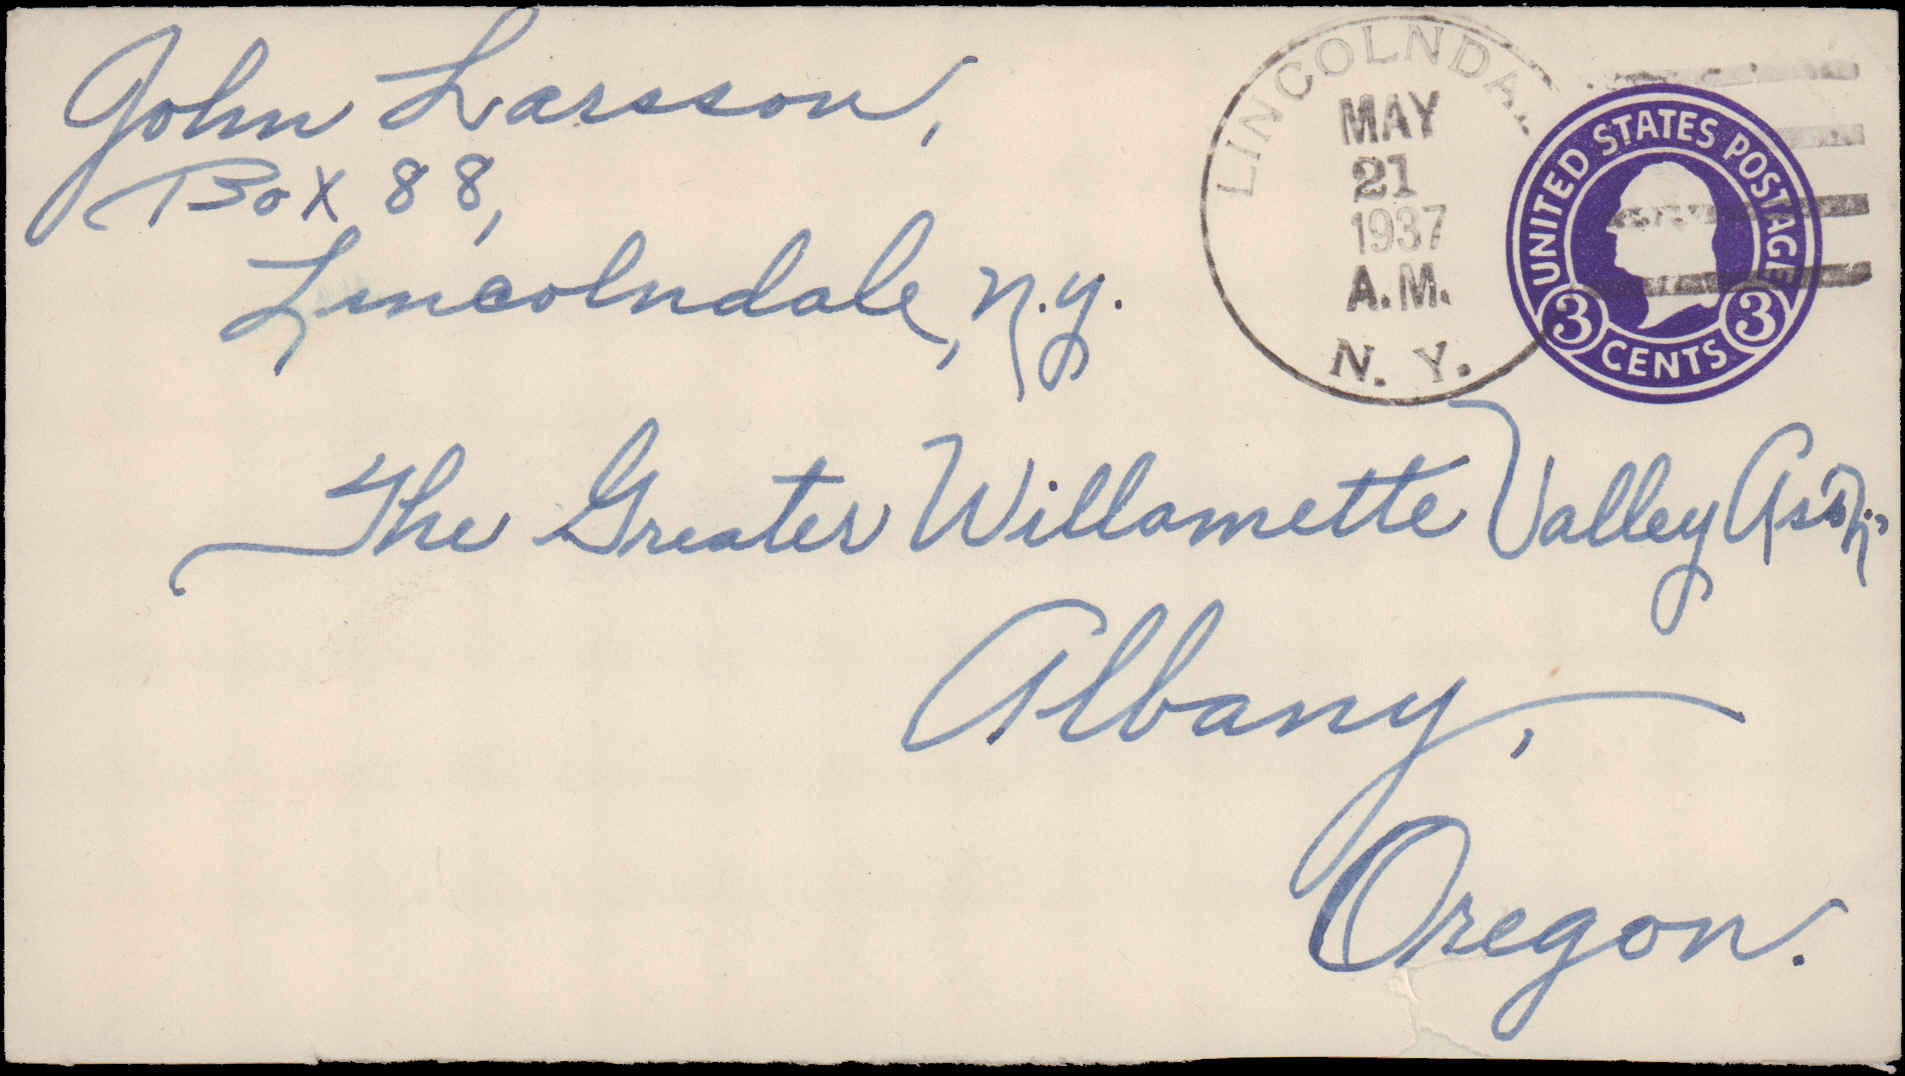 John Larsson,
Box 88,
Lincolndale, N.Y.
LINCOLNDA
MAY
21
1937
A.M.
N. Y.
UNITED STATES POSTAGE
3 CENTS 3
The Greater Willamette Valley Ass'n.,
Albany,
Oregon.